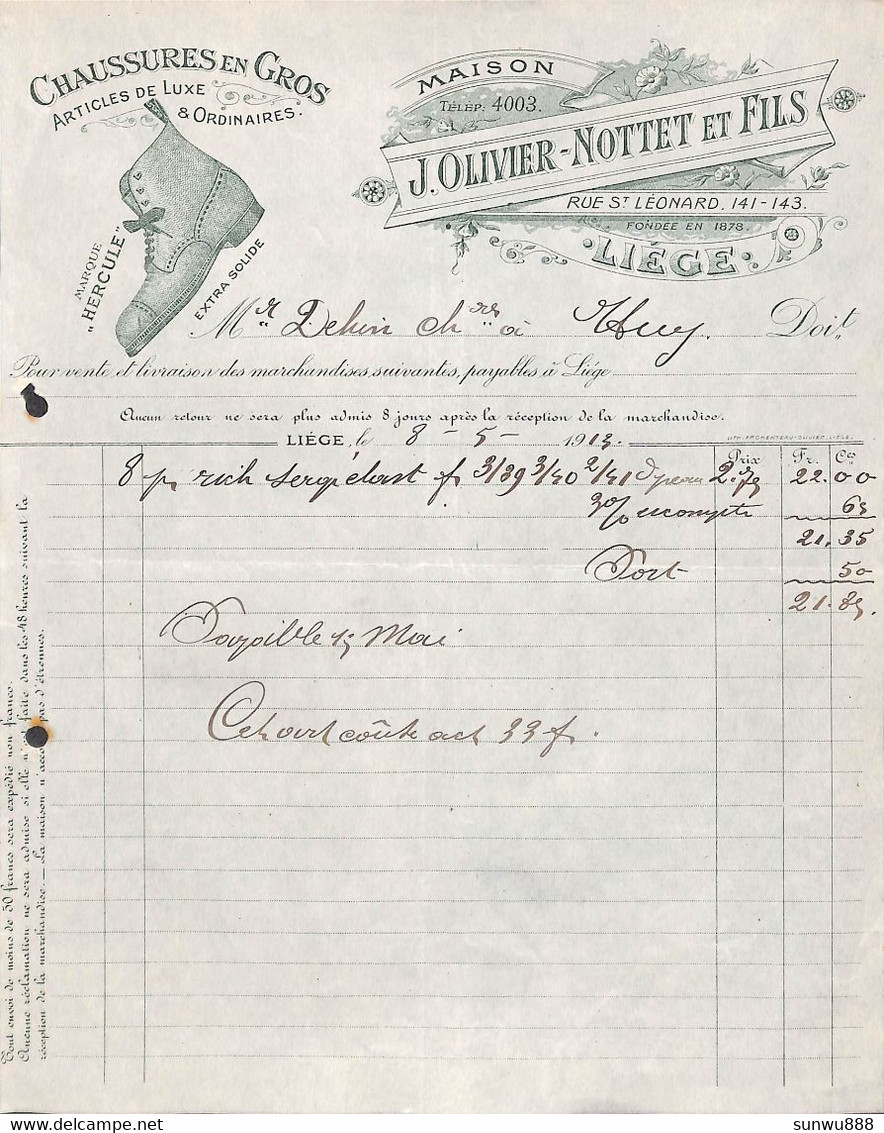 CHAUSSURES EN GROS
ARTICLES DE LUXE
& ORDINAIRES.
MARQUE
"HERCULE"
EXTRA SOLIDE
MAISON
TÉLÉP. 4003.
J. OLIVIER-NOTTET ET FILS
RUE ST LÉONARD. 141-143.
FONDÉE EN 1878.
LIÉGE
Mr Dehin chres à Huy. Doit
Pour vente et livraison des marchandises suivantes, payables à Liége
Aucun retour ne sera plus admis 8 jours après la réception de la marchandise.
LIÉGE, le 8 - 5 - 1913.
Prix Fr. Ces
8 p. rich 3/39 3/40 2/41 2.75 22.00
3% escompte 65
21.35
Port 50
21.85
Payable 15 Mai
33 f.
Tout envoi de moins de 50 francs sera expédié non franco.
Aucune réclamation ne sera admise si elle n'est faite dans les 48 heures suivant la
réception de la marchandise. — La maison n'accorde pas d'étrennes.
sunwu888